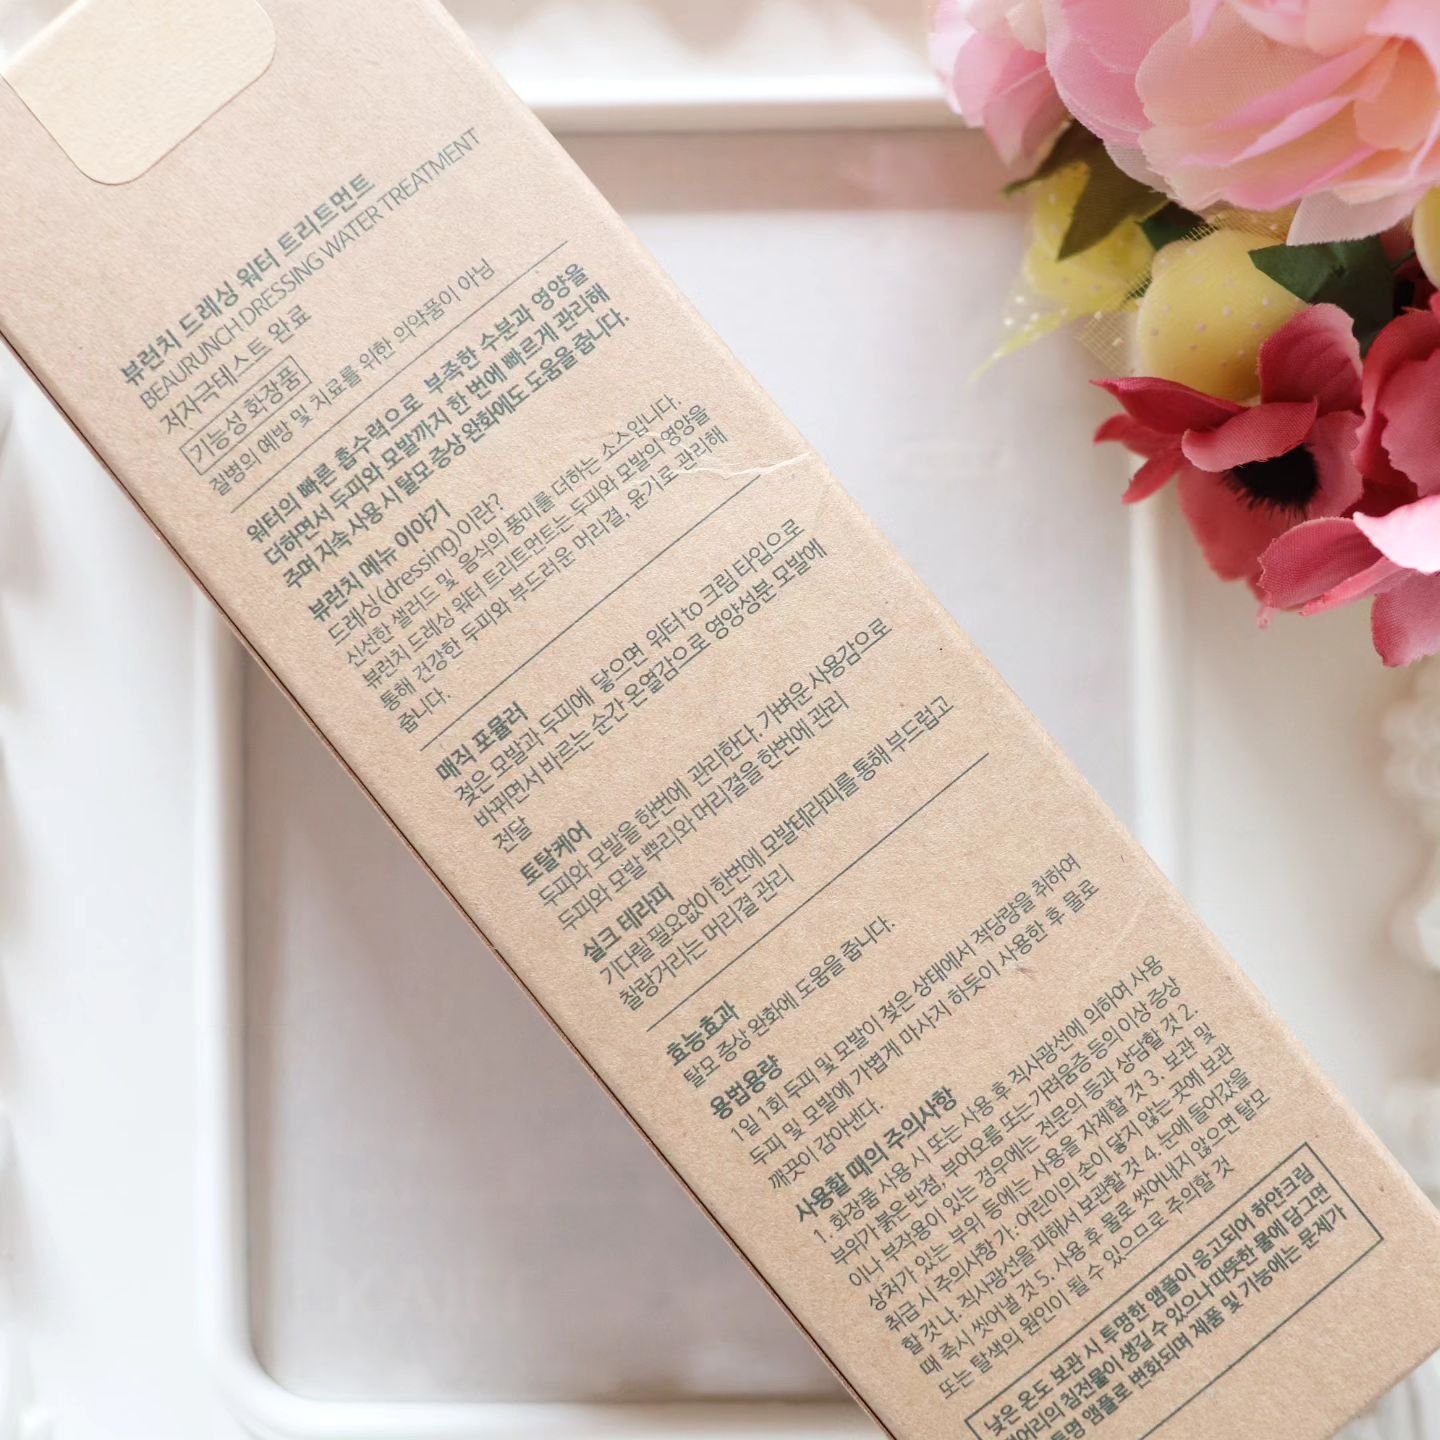 뷰런치 드레싱 워터 트리트먼트
BEAURUNCH DRESSING WATER TREATMENT
저자극테스트 완료
기능성 화장품
질병의 예방 및 치료를 위한 의약품이 아님
워터의 빠른 흡수력으로 부족한 수분과 영양을
더하면서 두피와 모발까지 한 번에 빠르게 관리해
주며 지속 사용 시 탈모 증상 완화에도 도움을 줍니다.
뷰런치 메뉴 이야기
드레싱(dressing)이란?
신선한 샐러드 및 음식의 풍미를 더하는 소스입니다.
뷰런치 드레싱 워터 트리트먼트는 두피와 모발의 영양을
통해 건강한 두피와 부드러운 머리결, 윤기로 관리해
줍니다.
매직 포뮬러
젖은 모발과 두피에 닿으면 워터 to 크림 타입으로
바뀌면서 바르는 순간 온열감으로 영양성분 모발에
전달
토탈케어
두피와 모발을 한번에 관리한다, 가벼운 사용감으로
두피와 모발 뿌리와 머리결을 한번에 관리
실크 테라피
기다릴 필요없이 한번에 모발테라피를 통해 부드럽고
찰랑거리는 머리결 관리
효능효과
탈모 증상 완화에 도움을 줍니다.
용법용량
1일 1회 두피 및 모발이 젖은 상태에서 적당량을 취하여
두피 및 모발에 가볍게 마사지 하듯이 사용한 후 물로
깨끗이 감아낸다.
사용할 때의 주의사항
1. 화장품 사용 시 또는 사용 후 직사광선에 의하여 사용
부위가 붉은 반점, 부어오름 또는 가려움증 등의 이상 증상
이나 부작용이 있는 경우에는 전문의 등과 상담할 것 2.
상처가 있는 부위 등에는 사용을 자제할 것 3. 보관 및
취급 시 주의사항 가. 어린이의 손이 닿지 않는 곳에 보관
할 것 나. 직사광선을 피해서 보관할 것 4. 눈에 들어갔을
때 즉시 씻어낼 것 5. 사용 후 물로 씻어내지 않으면 탈모
또는 탈색의 원인이 될 수 있으므로 주의할 것
낮은 온도 보관 시 투명한 앰플이 응고되어 하얀크림
덩어리의 침전물이 생길 수 있으나 따뜻한 물에 담그면
투명 앰플로 변화되며 제품 및 기능에는 문제가